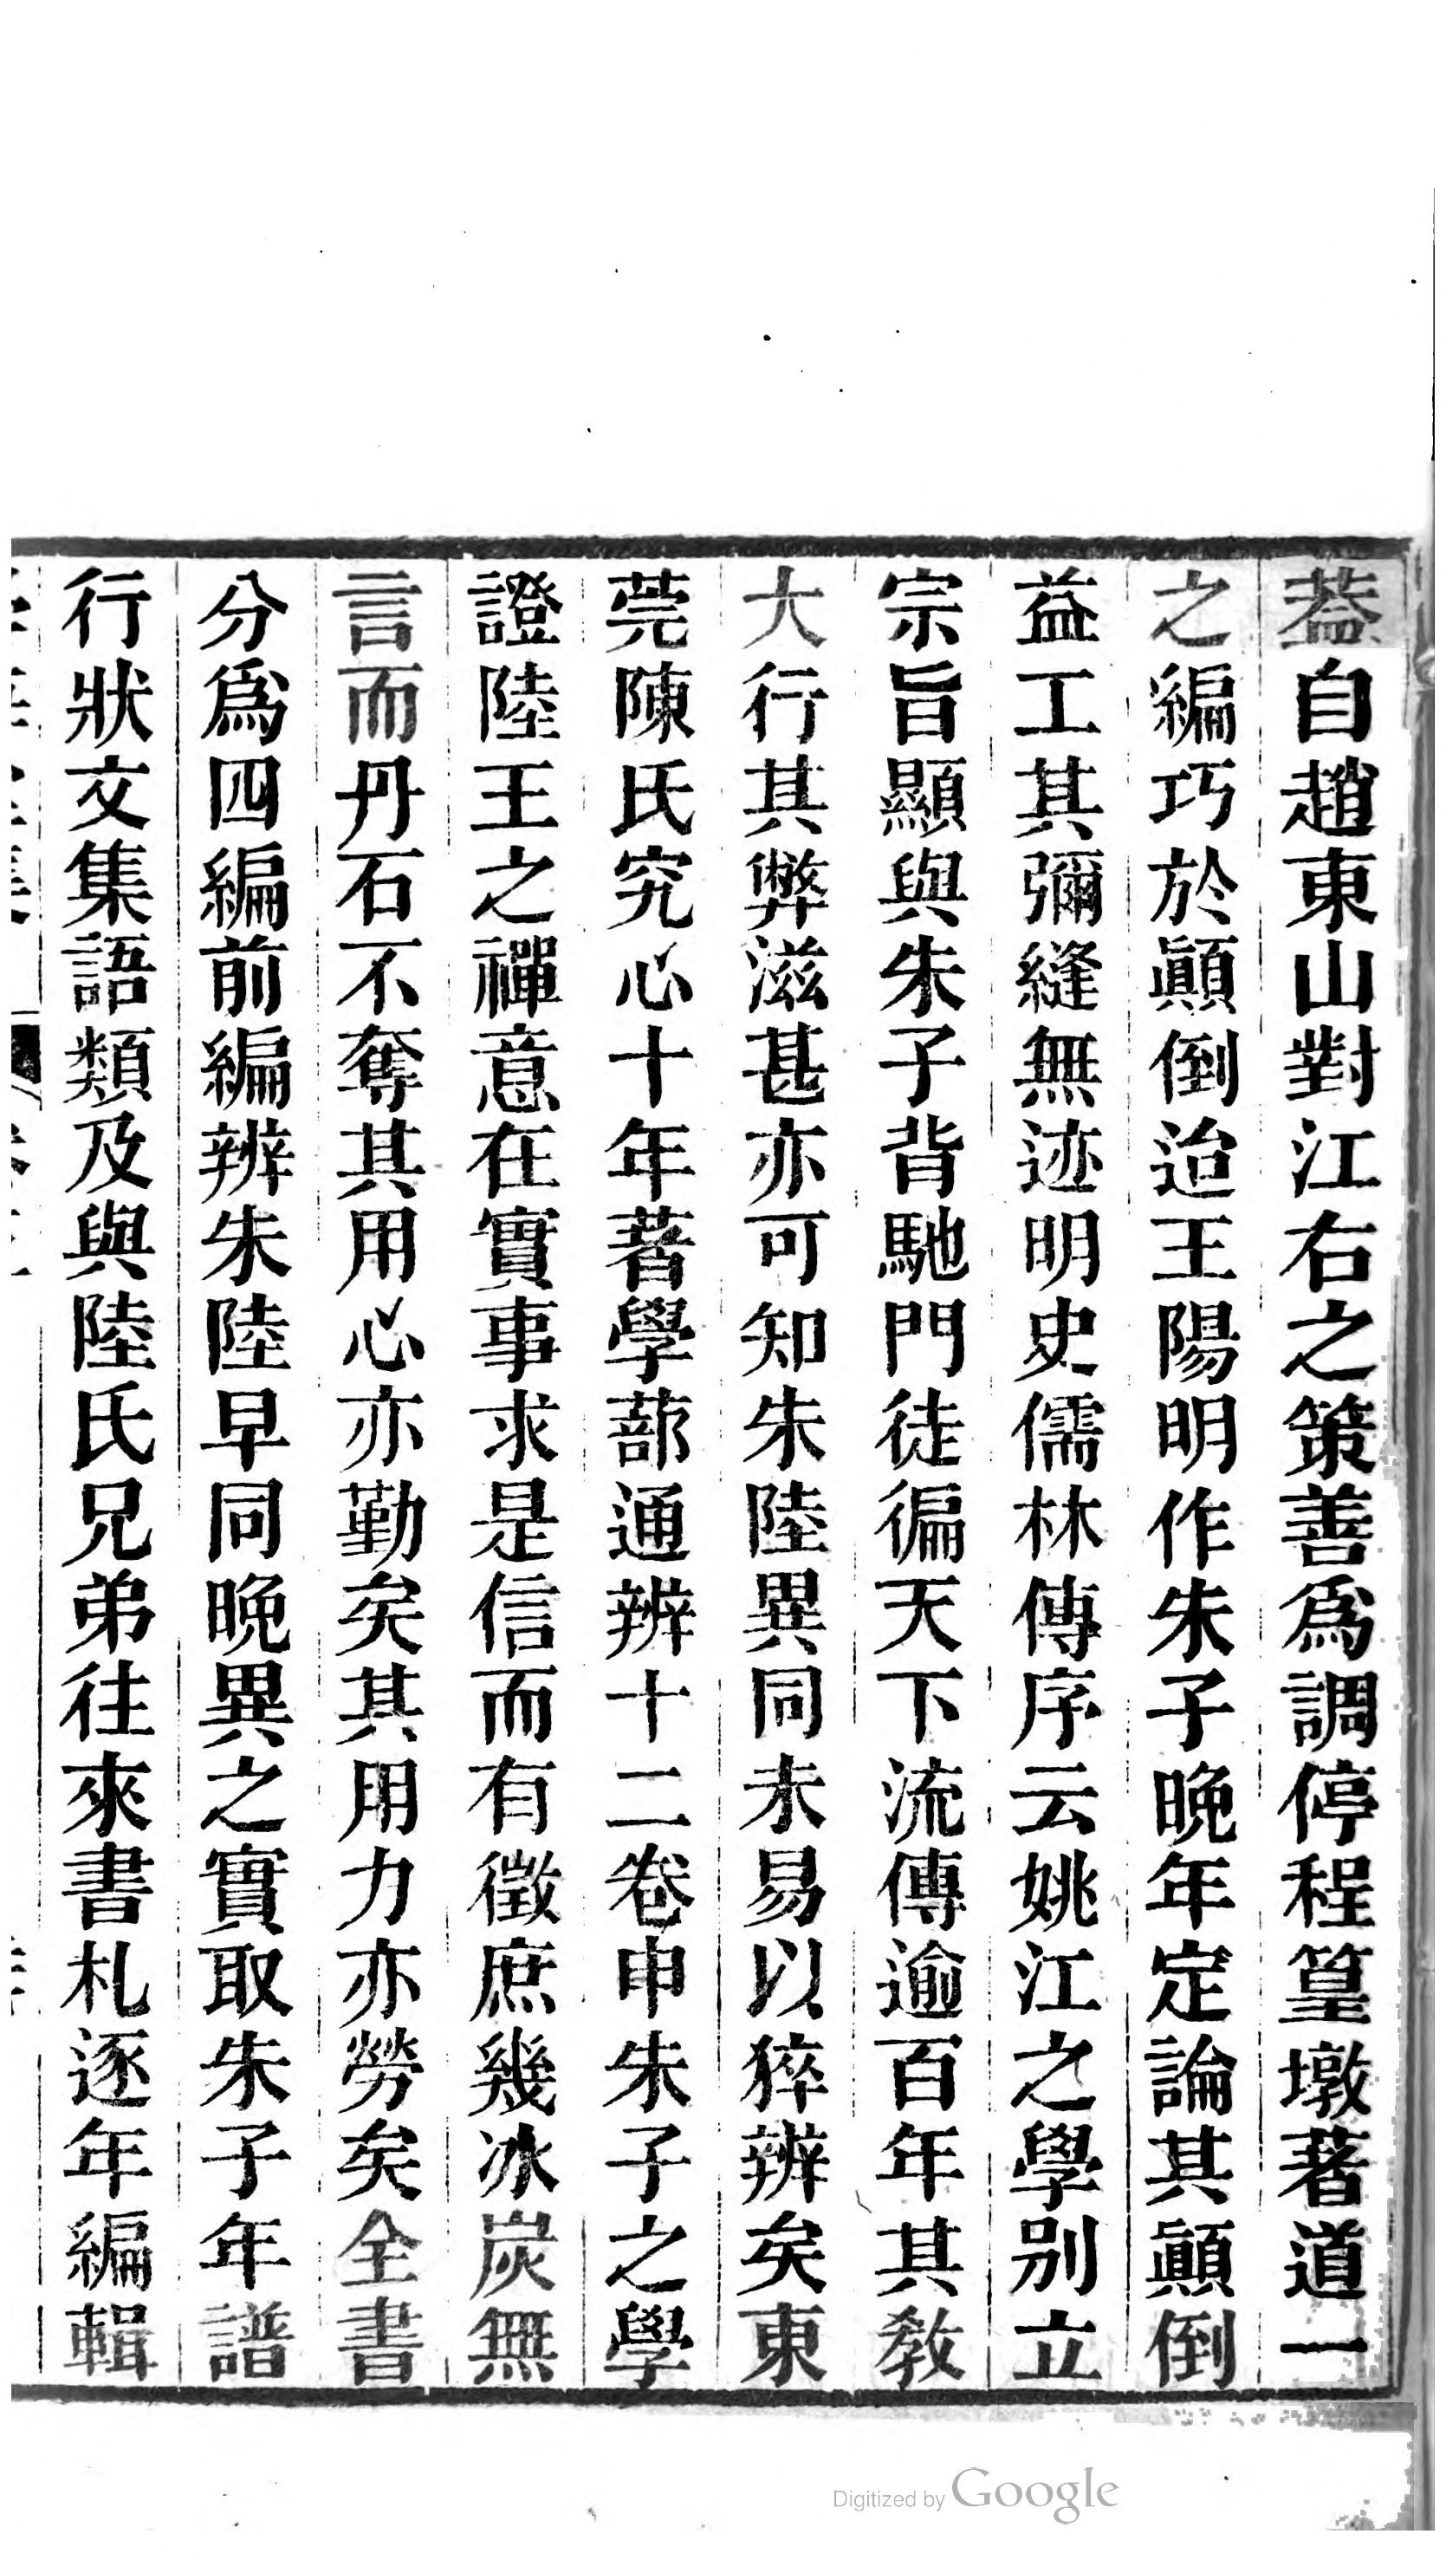 葢自趙東山對江右之策善爲調停程篁墩著道一
之編巧於顚倒迨王陽明作朱子晚年定論其顚倒
益工其彌縫無迹明史儒林傳序云姚江之學別立
宗旨顯與朱子背馳門徒徧天下流傳逾百年其敎
大行其弊滋甚亦可知朱陸異同未易以猝辨矣東
莞陳氏究心十年著學蔀通辨十二卷申朱子之學
證陸王之禪意在實事求是信而有徵庶幾冰炭無
言而丹石不奪其用心亦勤矣其用力亦勞矣全書
分爲四編前編辨朱陸早同晚異之實取朱子年譜
行狀文集語類及與陸氏兄弟往來書札逐年編輯
Digitized by Google